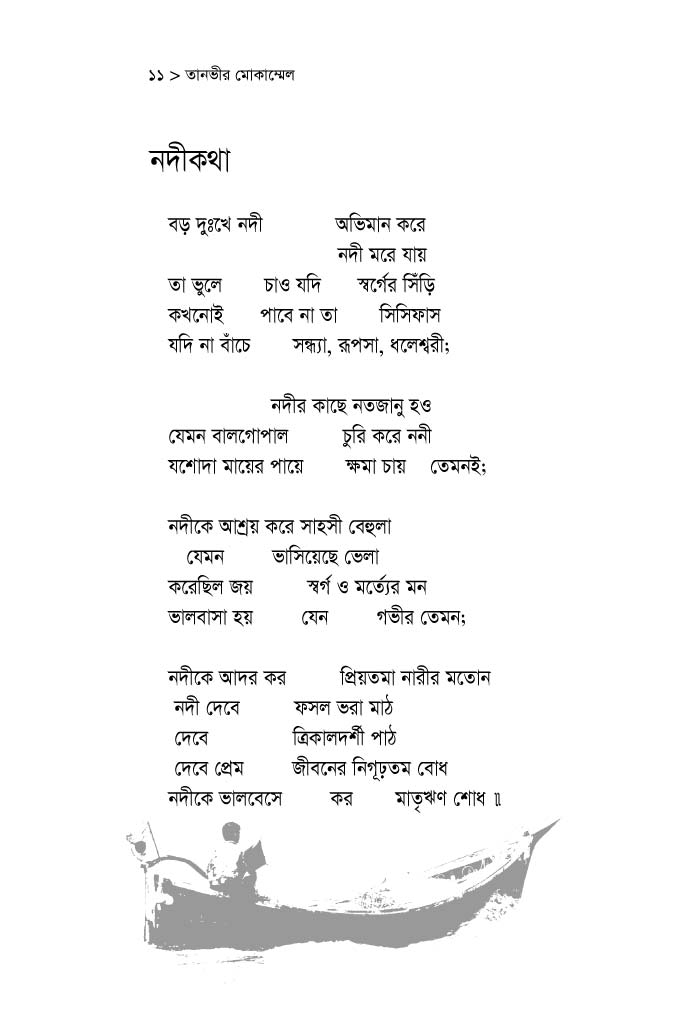 ১১ > তানভীর মোকাম্মেল
নদীকথা
বড় দুঃখে নদী অভিমান করে
নদী মরে যায়
তা ভুলে চাও যদি স্বর্গের সিঁড়ি
কখনোই পাবে না তা সিসিফাস
যদি না বাঁচে সন্ধ্যা, রূপসা, ধলেশ্বরী;
নদীর কাছে নতজানু হও
যেমন বালগোপাল চুরি করে ননী
যশোদা মায়ের পায়ে ক্ষমা চায় তেমনই;
নদীকে আশ্রয় করে সাহসী বেহুলা
যেমন ভাসিয়েছে ভেলা
করেছিল জয় স্বর্গ ও মর্ত্যের মন
ভালবাসা হয় যেন গভীর তেমন;
নদীকে আদর কর প্রিয়তমা নারীর মতোন
নদী দেবে ফসল ভরা মাঠ
দেবে ত্রিকালদর্শী পাঠ
দেবে প্রেম জীবনের নিগূঢ়তম বোধ
নদীকে ভালবেসে কর মাতৃঋণ শোধ ॥